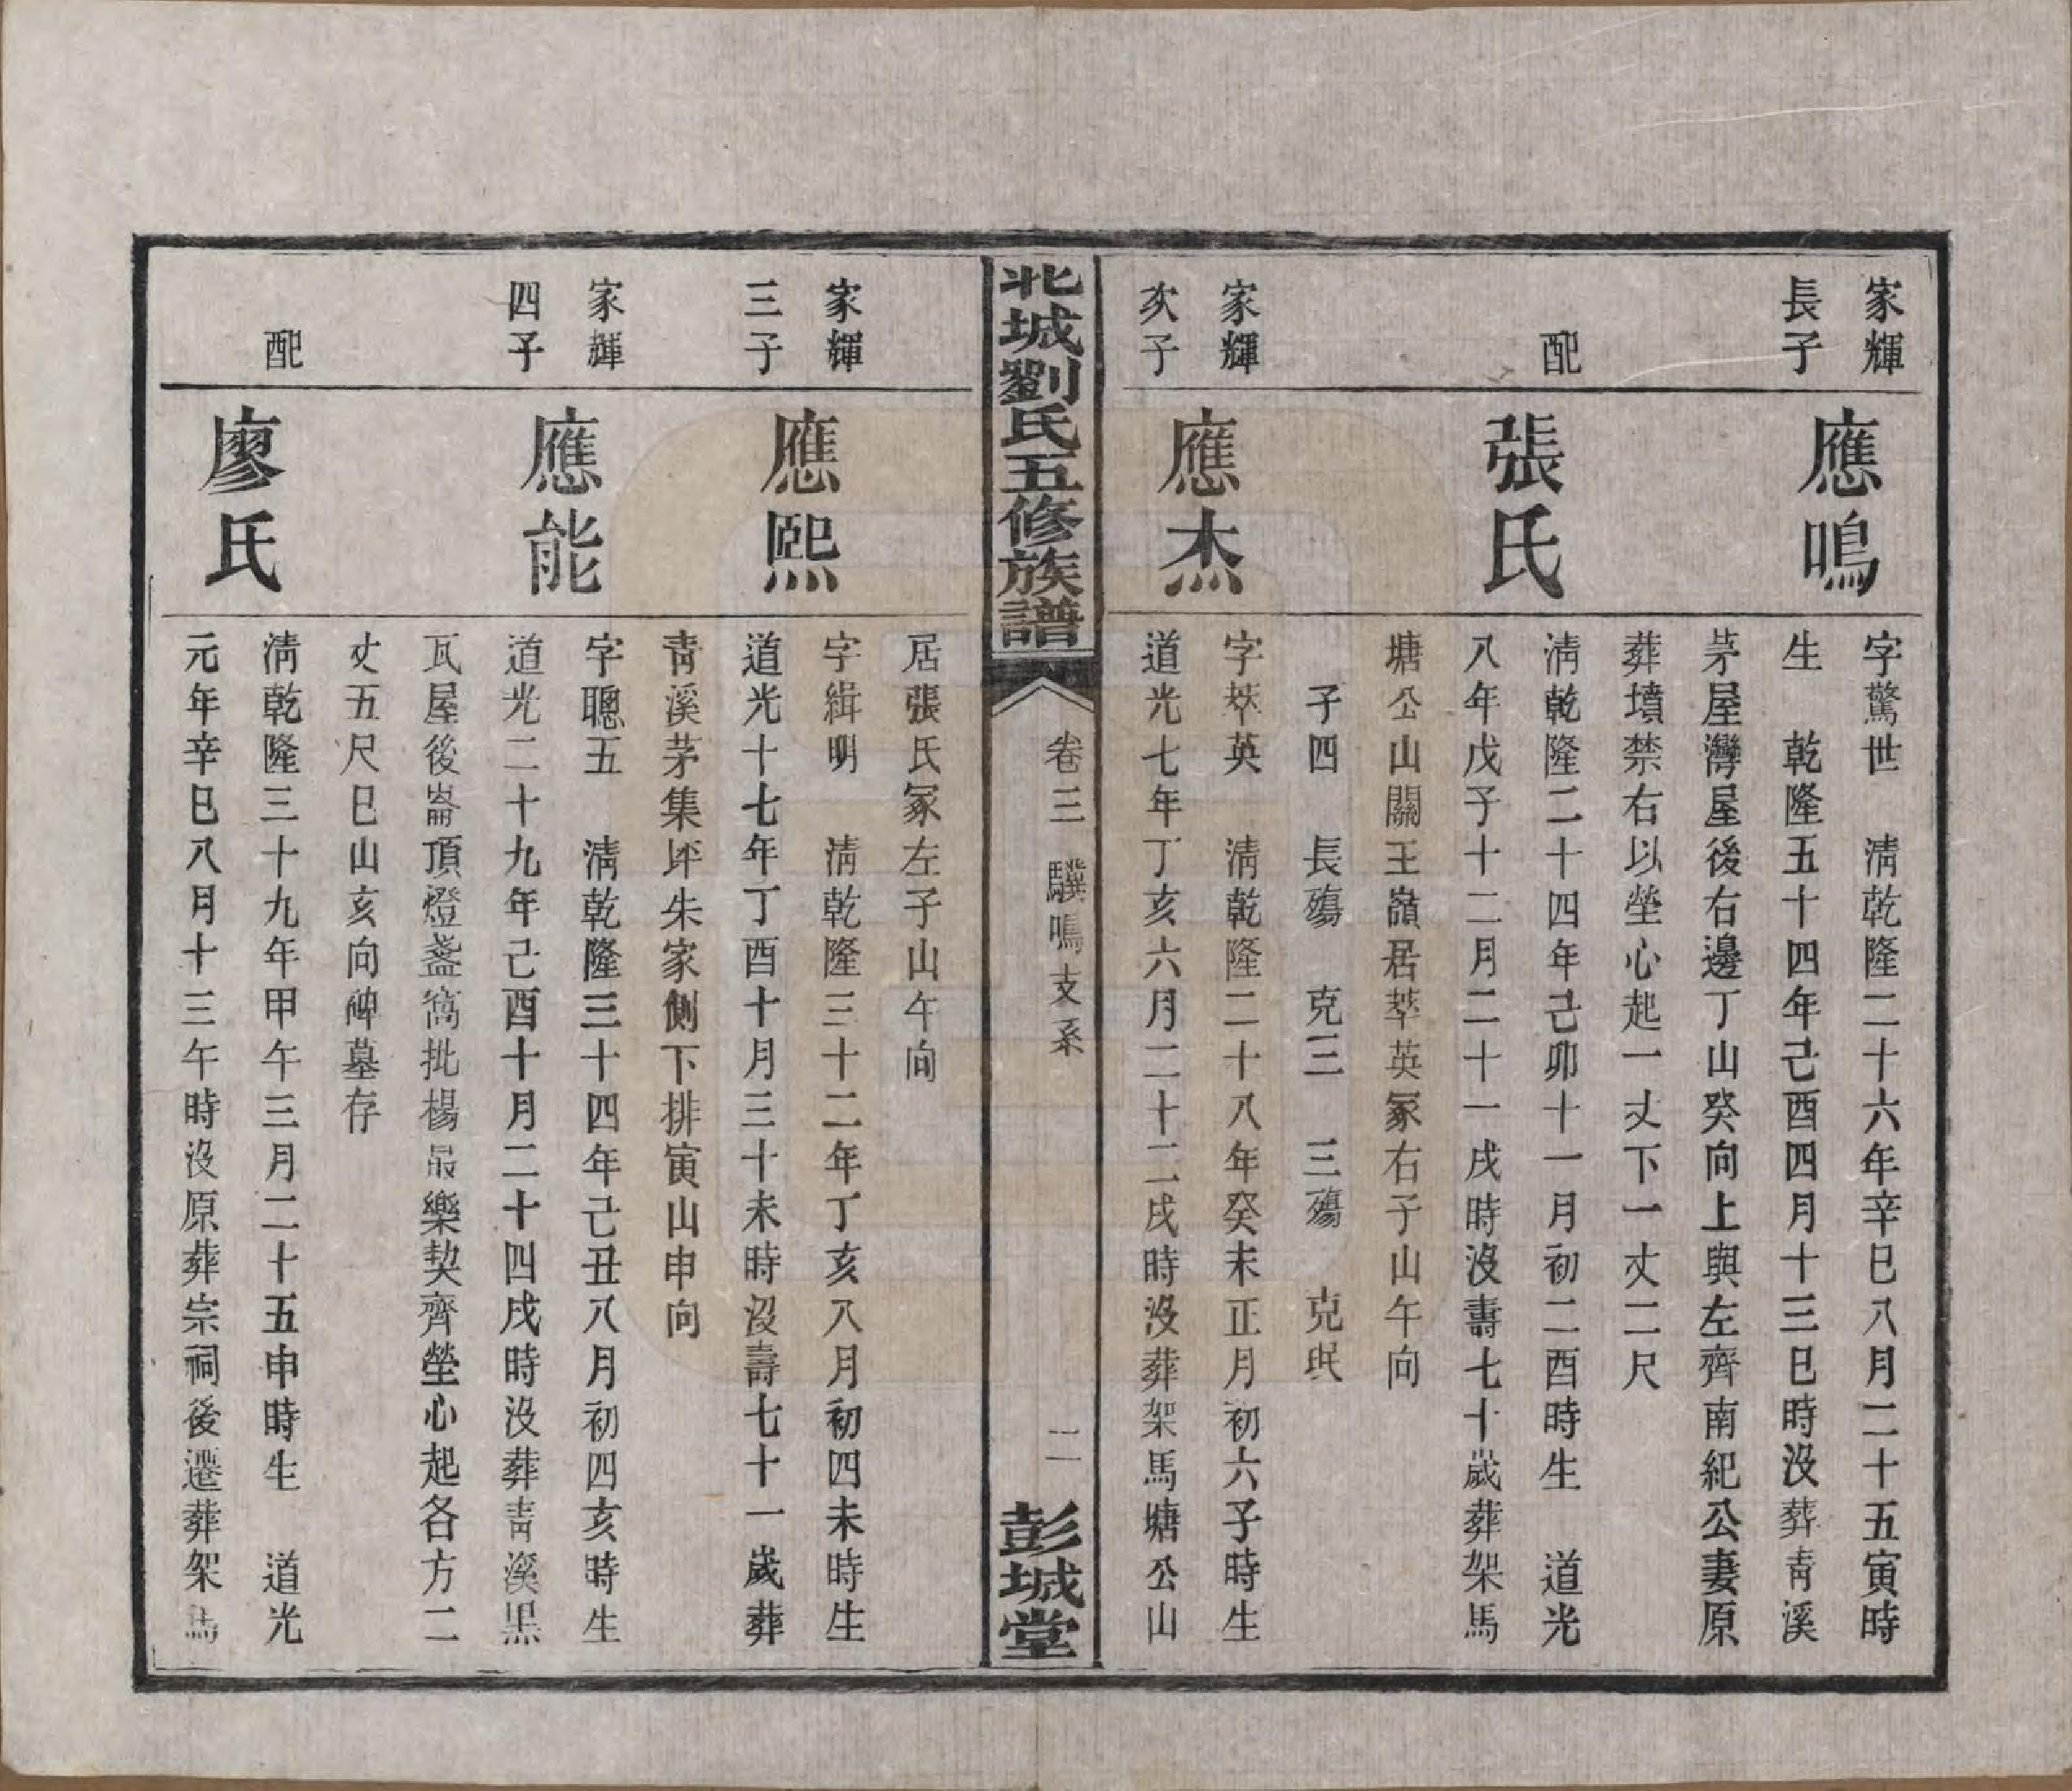 家輝
長子
應鳴
字驚世　清乾隆二十六年辛巳八月二十五寅時
生　乾隆五十四年己酉四月十三巳時沒葬青溪
茅屋灣屋後右邊丁山癸向上與左齊南紀公妻原
葬墳禁右以塋心起一丈下一丈二尺
配
張氏
清乾隆二十四年己卯十一月初二酉時生　道光
八年戊子十二月二十一戌時沒壽七十歲葬架馬
塘公山關王嶺居萃英冢右子山午向
子四　長殤　克三　三殤　克珉
家輝
次子
應杰
字萃英　清乾隆二十八年癸未正月初六子時生
道光七年丁亥六月二十二戌時沒葬架馬塘公山
北城劉氏五修族譜
卷三　驥鳴支系
二
彭城堂
居張氏冢左子山午向
家輝
三子
應熙
字緝明　清乾隆三十二年丁亥八月初四未時生
道光十七年丁酉十月三十未時沒壽七十一歲葬
青溪茅集坪朱家側下排寅山申向
家輝
四子
應能
字聰五　清乾隆三十四年己丑八月初四亥時生
道光二十九年己酉十月二十四戌時沒葬青溪黑
瓦屋後崙頂燈盞窩批楊最樂契齊塋心起各方二
丈五尺巳山亥向碑墓存
配
廖氏
清乾隆三十九年甲午三月二十五申時生　道光
元年辛巳八月十三午時沒原葬宗祠後遷葬架馬